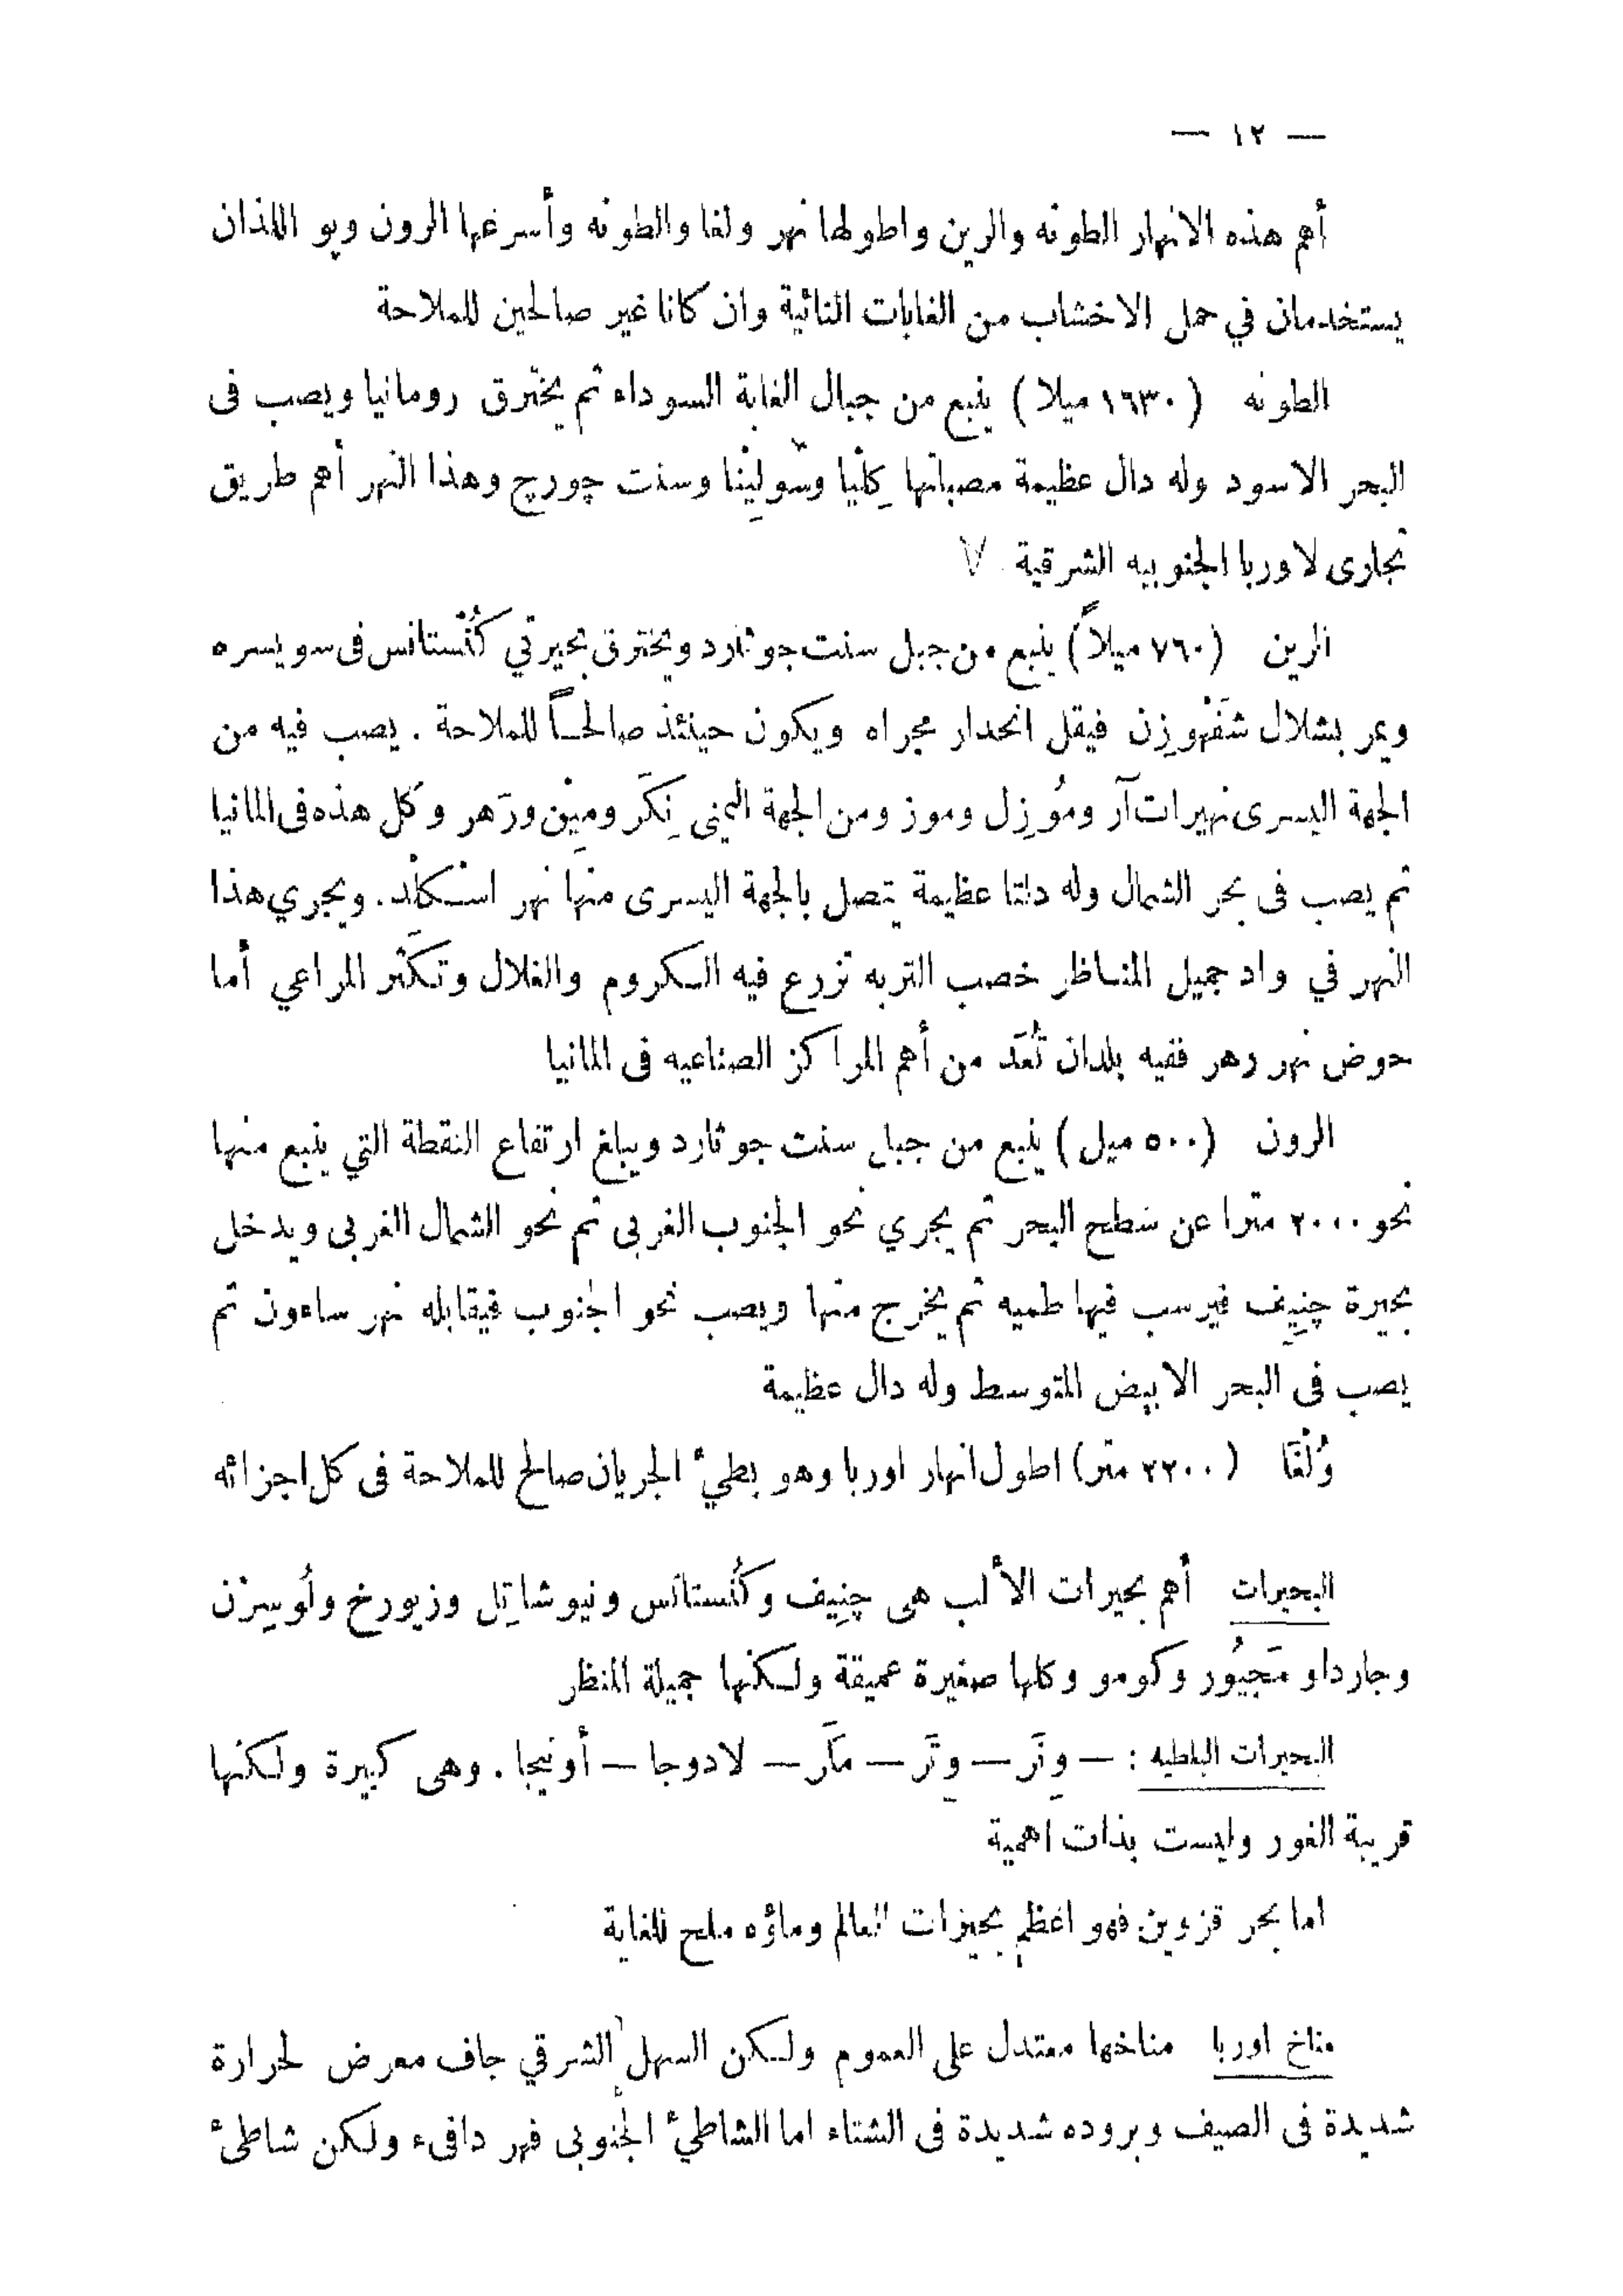 — ١٢ —
أهم هذه الانهار الطونه والرين واطولها نهر ولغا والطونه وأسرعها الرون وپو اللذان
يستخدمان في حمل الاخشاب من الغابات النائية وان كانا غير صالحين للملاحة
الطونه (١٦٣٠ ميلا) ينبع من جبال الغابة السوداء ثم يخترق رومانيا ويصب فى
البحر الاسود وله دال عظيمة مصباتها كِلْيا وسُولِيْنا وسنت چورچ وهذا النهر أهم طريق
تجارى لاوربا الجنوبيه الشرقية
الرين (٧٦٠ ميلاً) ينبع من جبل سنت جوثارد ويخترق بحيرتي كُنْستانس فى سويسره
ويمر بشلال شَفْهوزِن فيقل انحدار مجراه ويكون حينئذ صالحـاً للملاحة . يصب فيه من
الجهة اليسرى نهيرات آر ومُوزِل وموز ومن الجهة اليمنى نِكَر ومِيْن ورَهر وكل هذه فى المانيا
ثم يصب فى بحر الشمال وله دلتا عظيمة يتصل بالجهة اليسرى منها نهر اسْـكَلْد. ويجري هذا
النهر في واد جميل المنـاظر خصب التربه تزرع فيه الـكروم والغلال وتـكَثر المراعي أما
حوض نهر رهر ففيه بلدان تُعَد من أهم المراكز الصناعيه فى المانيا
الرون (٥٠٠ ميل) ينبع من جبل سنت جوثارد ويبلغ ارتفاع النقطة التي ينبع منها
نحو ٢٠٠٠ مترا عن سطح البحر ثم يجري نحو الجنوب الغربى ثم نحو الشمال الغربى ويدخل
بحيرة چنِيِف فيرسب فيها طميه ثم يخرج منها ويصب نحو الجنوب فيقابله نهر ساءون ثم
يصب فى البحر الابيض المتوسط وله دال عظيمة
وُلْغَا (٢٢٠٠ متر) اطول انهار اوربا وهو بطيئ الجريان صالح للملاحة فى كل اجزائه
البحيرات أهم بحيرات الألب هى چنِيف وكُنْستانس ونيوشاتِل وزيورخ ولُوسِرْن
وجاردا و مَجيُور وكومو وكلها صغيرة عميقة ولـكنها جميلة المنظر
البحيرات البلطيه : — وِنَر — وِتَر — مَلَر — لادوجا — أونيجا . وهى كبيرة ولـكنها
قريبة الغور وليست بذات اهمية
اما بحر قزوين فهو اعظم بحيرات العالم وماؤه ملح للغاية
مناخ اوربا مناخها معتدل على العموم ولـكن السهل الشرقي جاف معرض لحرارة
شديدة فى الصيف وبروده شديدة فى الشتاء اما الشاطئ الجنوبى فهر دافىء ولكن شاطئ